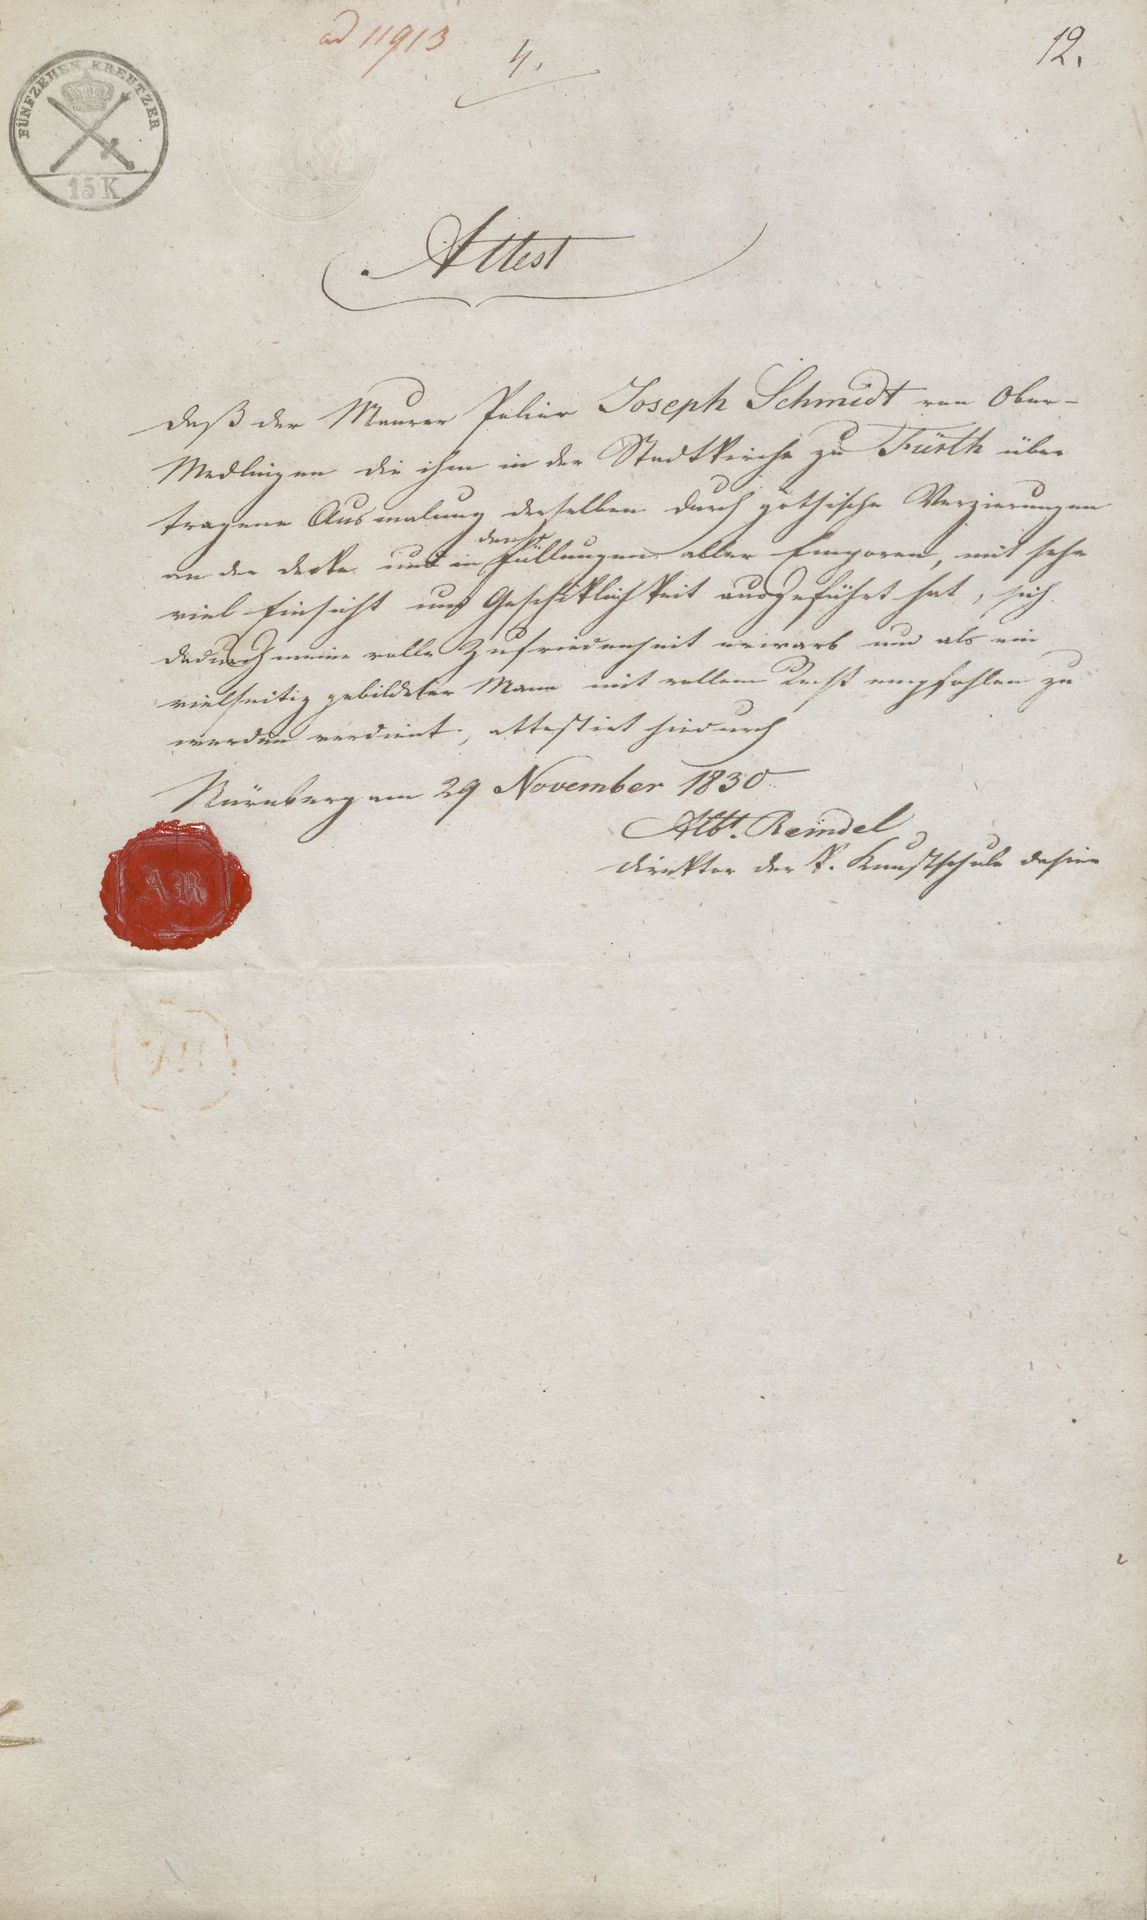 ad 11913
4.
12.
FÜNFZEHEN KREUTZER
15 K
Attest
daß der Maurer Palier Joseph Schmidt von Ober-
Medlingen die ihm in der Stadtkirche zu Fürth über
tragene Ausmalung derselben durch gothische Verzierungen
an der Decke und in den Füllungen aller Emporen, mit sehr
viel Einsicht und Geschiklichkeit ausgeführt hat, sich
dadurch meine volle Zufriedenheit erwarb und als ein
vielseitig gebildeter Mann mit vollem Recht empfohlen zu
werden verdient, attestirt hiedurch
Nürnberg am 29 November 1830
Albt. Reindel
Direktor der k. Kunstschule
AR